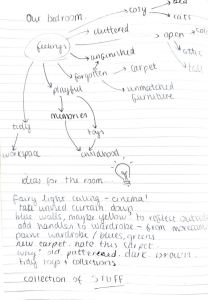 Our bedroom
cosy
cluttered
open
feelings
unfinished
forgotten
carpet
playful
unmatched
furniture
memories
tidy
toys
workspace
childhood
ideas for the room....
fairy light ceiling - cinema!
take unused curtain down.
blue walls, maybe yellow? to reflect outside
add handles to wardrobe - from
paint wardrobe / blues, greens
new carpet. hate this carpet.
why? old. patterned. dark. brown.
tidy toys + collections.
collection of STUFF